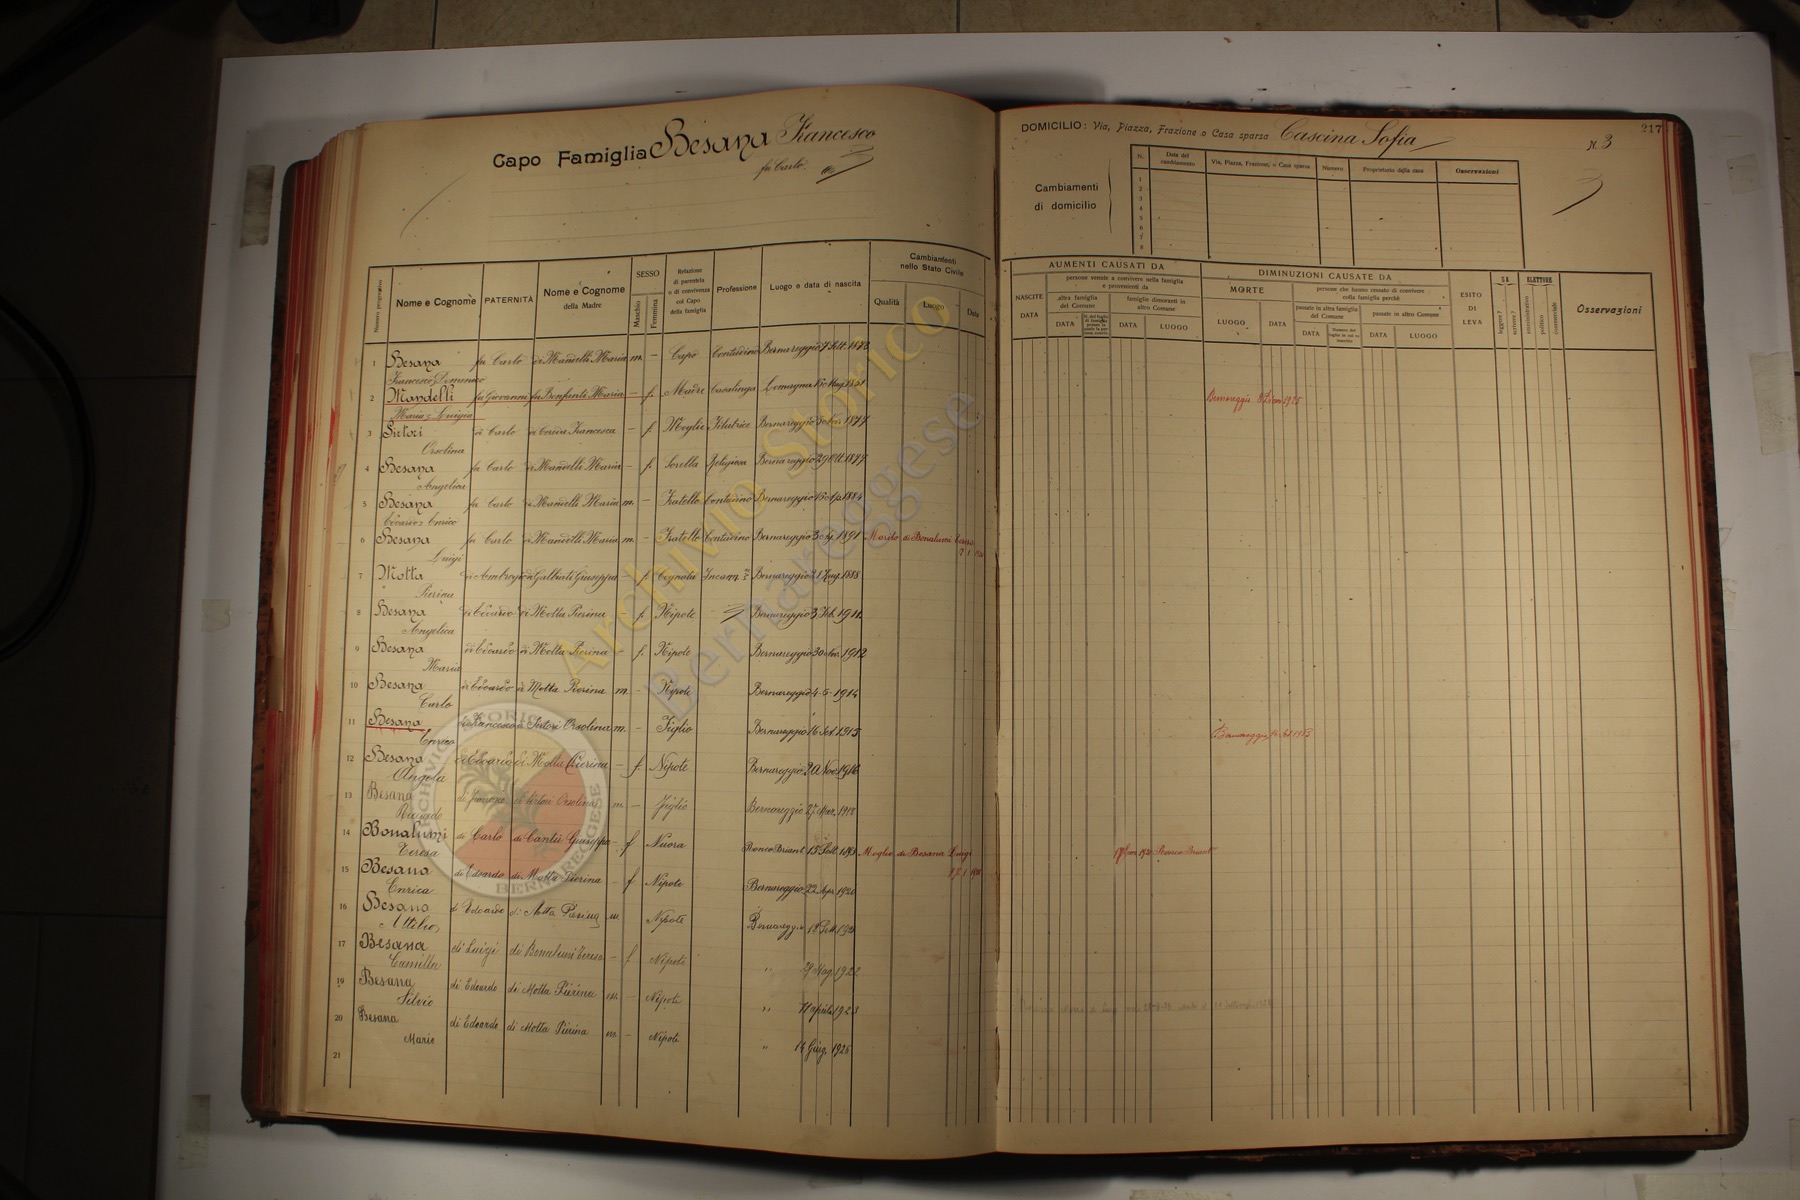 Capo Famiglia Besana Francesco
fu Carlo
DOMICILIO: Via, Piazza, Frazione o Casa sparsa Cascina Sofia N. 3
217
Cambiamenti di domicilio
N. Data del cambiamento Via, Piazza, Frazione, o Casa sparsa Numero Proprietario della casa Osservazioni
1
2
3
4
5
6
7
8
Numero progressivo Nome e Cognome PATERNITÀ Nome e Cognome della Madre SESSO Maschio Femmina Relazione di parentela o di convivenza col Capo della famiglia Professione Luogo e data di nascita Cambiamenti nello Stato Civile Qualità Luogo Data
AUMENTI CAUSATI DA
NASCITE DATA
persone venute a convivere nella famiglia e provenienti da
altra famiglia del Comune DATA
famiglie dimoranti in altro Comune DATA LUOGO
DIMINUZIONI CAUSATE DA
MORTE LUOGO DATA
persone che hanno cessato di convivere colla famiglia perchè
passate in altra famiglia del Comune DATA
passate in altro Comune DATA LUOGO
ESITO DI LEVA
SA leggere? scrivere?
ELETTORE amministrativo politico commerciale
Osservazioni
1 Besana Francesco Domenico fu Carlo di Mandelli Maria m. – Capo Contadino Bernareggio 7 Sett. 1873
2 Mandelli Maria Luigia fu Giovanni fu Bonfanti Maria – f. Madre Casalinga Lomagna 15 Mag. 1851 Bernareggio 1925
3 Sirtori Orsolina di Carlo di Corida Francesca – f. Moglie Filatrice Bernareggio 1877
4 Besana Angelica fu Carlo di Mandelli Maria – f. Sorella Religiosa Bernareggio 29 Ott. 1877
5 Besana Edoardo Enrico fu Carlo di Mandelli Maria m. – Fratello Contadino Bernareggio 1884
6 Besana Luigi fu Carlo di Mandelli Maria m. – Fratello Contadino Bernareggio 1891 Marito di Bonalumi Teresa
7 Motta Pierina di Ambrogio di Galbiati Giuseppa f. Cognata Bernareggio 21 1888
8 Besana Angelica di Edoardo di Motta Pierina – f. Nipote Bernareggio 3 Feb. 1911
9 Besana Maria di Edoardo di Motta Pierina – f. Nipote Bernareggio 30 1912
10 Besana Carlo di Edoardo di Motta Pierina m. – Nipote Bernareggio 4-5-1914
11 Besana Enrico di Francesco di Sirtori Orsolina m. – Figlio Bernareggio 16 Set. 1915 Bernareggio
12 Besana Angela di Edoardo di Motta Pierina – f. Nipote Bernareggio 20 Nov. 1916
13 Besana Riccardo di Sirtori Orsolina m – Figlio Bernareggio 27 Mar. 1918
14 Bonalumi Teresa di Carlo di Cantù Giuseppa – f Nuora Ronco Briant. 15 Sett. Moglie di Besana Luigi 1920 Ronco Briant.
15 Besana Enrica di Edoardo di Motta Pierina – f Nipote Bernareggio 22 Apr. 1920
16 Besana Attilio di Edoardo di Motta Pierina m. Nipote Bernareggio 18 Sett.
17 Besana Camilla di Luigi di Bonalumi Teresa – f Nipote " 29 Mag. 1922
19 Besana Silvio di Edoardo di Motta Pierina m. – Nipote " 11 aprile 1923
20 Besana Mario di Edoardo di Motta Pierina m. – Nipote " 14 Giug. 1926
21
Archivio Storico
Bernareggese
ARCHIVIO STORICO
BERNAREGGESE